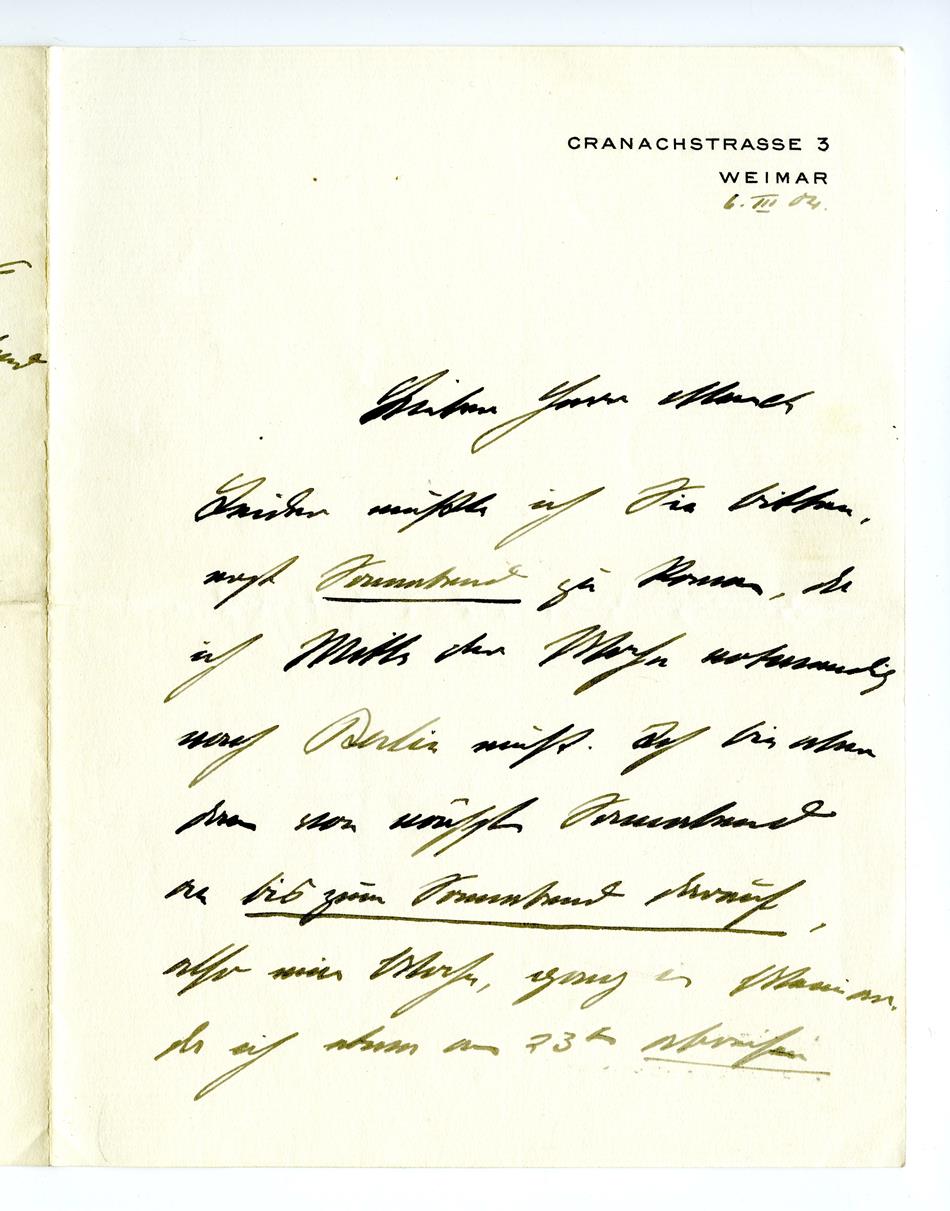 CRANACHSTRASSE 3
WEIMAR
6. III 04.
Lieber Herr Munch
Leider müßte ich Sie bitten,
erst Sonnabend zu kommen, da
ich Mitte der Woche notwendig
nach Berlin muß. Ich bin aber
dann von Sonnabend
an bis zum Sonnabend darauf,
also eine Woche, ganz in Weimar.
da ich am 23ten